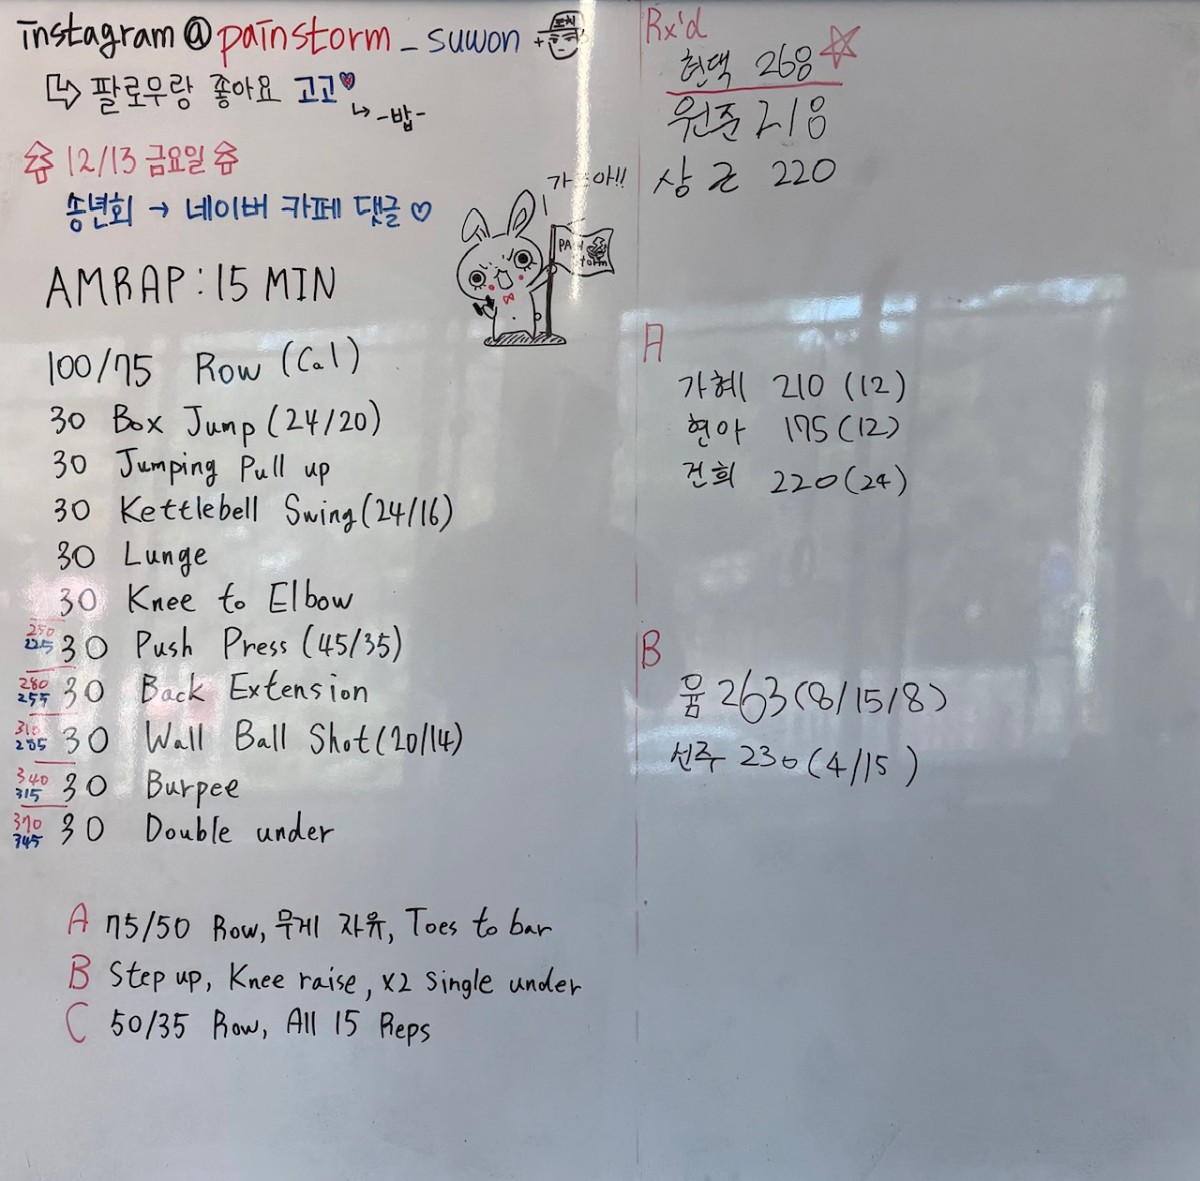 instagram@painstorm_suwon
팔로우랑 좋아요 고고
-밥-
12/13 금요일
송년회 → 네이버 카페 댓글 ♡
AMRAP : 15 MIN
100/75 Row (Cal)
30 Box Jump (24/20)
30 Jumping Pull up
30 Kettlebell Swing (24/16)
30 Lunge
30 Knee to Elbow
250
225 30 Push Press (45/35)
280
255 30 Back Extension
310
285 30 Wall Ball Shot (20/14)
340
315 30 Burpee
370
345 30 Double under
A 75/50 Row, 무게 자유, Toes to bar
B Step up, Knee raise, x2 Single under
C 50/35 Row, All 15 Reps
Rx'd
현택 268
원준 218
상근 220
A
가혜 210 (12)
현아 175 (12)
건희 220 (24)
B
윰 263 (8/15/8)
선주 230 (4/15 )